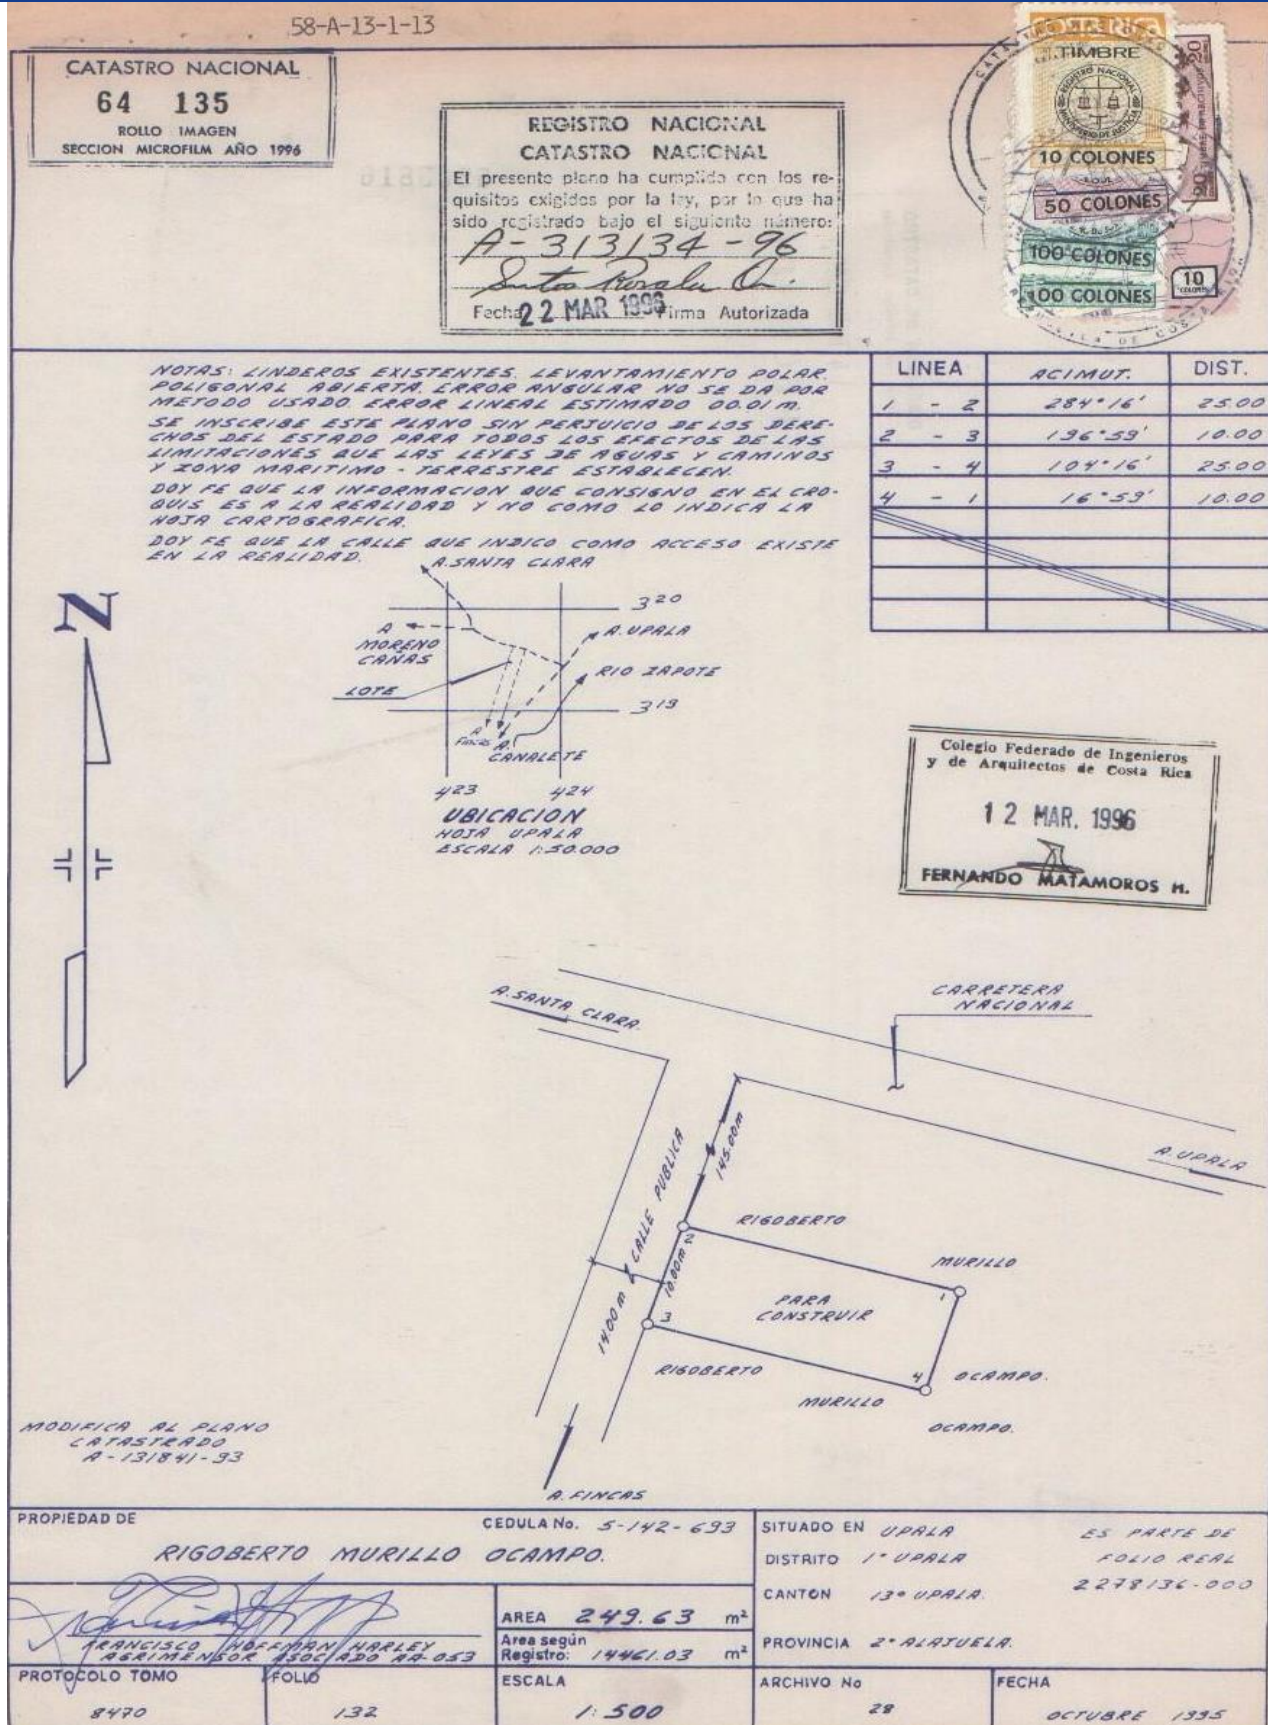 58-A-13-1-13
CATASTRO NACIONAL
64 135
ROLLO IMAGEN
SECCION MICROFILM AÑO 1996
REGISTRO NACIONAL
CATASTRO NACIONAL
El presente plano ha cumplido con los re-
quisitos exigidos por la ley, por lo que ha
sido registrado bajo el siguiente número:
A-313134-96
Fecha 22 MAR 1996 Firma Autorizada
TIMBRE
REGISTRO NACIONAL
MINISTERIO DE JUSTICIA
10 COLONES
50 COLONES
100 COLONES
100 COLONES
20
20
10
COLONES
NOTAS: LINDEROS EXISTENTES. LEVANTAMIENTO POLAR.
POLIGONAL ABIERTA. ERROR ANGULAR NO SE DA POR
METODO USADO. ERROR LINEAL ESTIMADO 00.01 m.
SE INSCRIBE ESTE PLANO SIN PERJUICIO DE LOS DERE-
CHOS DEL ESTADO PARA TODOS LOS EFECTOS DE LAS
LIMITACIONES QUE LAS LEYES DE AGUAS Y CAMINOS
Y ZONA MARITIMO - TERRESTRE ESTABLECEN.
DOY FE QUE LA INFORMACION QUE CONSIGNO EN EL CRO-
QUIS ES A LA REALIDAD Y NO COMO LO INDICA LA
HOJA CARTOGRAFICA.
DOY FE QUE LA CALLE QUE INDICO COMO ACCESO EXISTE
EN LA REALIDAD.
LINEA ACIMUT. DIST.
1 - 2 284°16' 25.00
2 - 3 196°59' 10.00
3 - 4 104°16' 25.00
4 - 1 16°59' 10.00
N
A. SANTA CLARA
320
A
MORENO
CAÑAS
A. UPALA
RIO ZAPOTE
LOTE
319
A
FINCAS
A.
CANALETE
423 424
UBICACION
HOJA UPALA
ESCALA 1:50.000
Colegio Federado de Ingenieros
y de Arquitectos de Costa Rica
12 MAR. 1996
FERNANDO MATAMOROS H.
A. SANTA CLARA.
CARRETERA
NACIONAL
A. UPALA
145.00m
CALLE PUBLICA
14.00 m
10.00m
2
RIGOBERTO
MURILLO
1
PARA
CONSTRUIR
3
RIGOBERTO
4
OCAMPO.
MURILLO
OCAMPO.
A. FINCAS
MODIFICA AL PLANO
CATASTRADO
A-131841-93
PROPIEDAD DE
CEDULA No. 5-142-693
RIGOBERTO MURILLO OCAMPO.
SITUADO EN UPALA
DISTRITO 1° UPALA
CANTON 13° UPALA.
PROVINCIA 2° ALAJUELA.
ES PARTE DE
FOLIO REAL
2278136-000
FRANCISCO HOFFMAN HARLEY
AGRIMENSOR ASOCIADO AA-053
AREA 249.63 m²
Area según
Registro: 14461.03 m²
PROTOCOLO TOMO
8470
FOLIO
132
ESCALA
1:500
ARCHIVO No
28
FECHA
OCTUBRE 1995